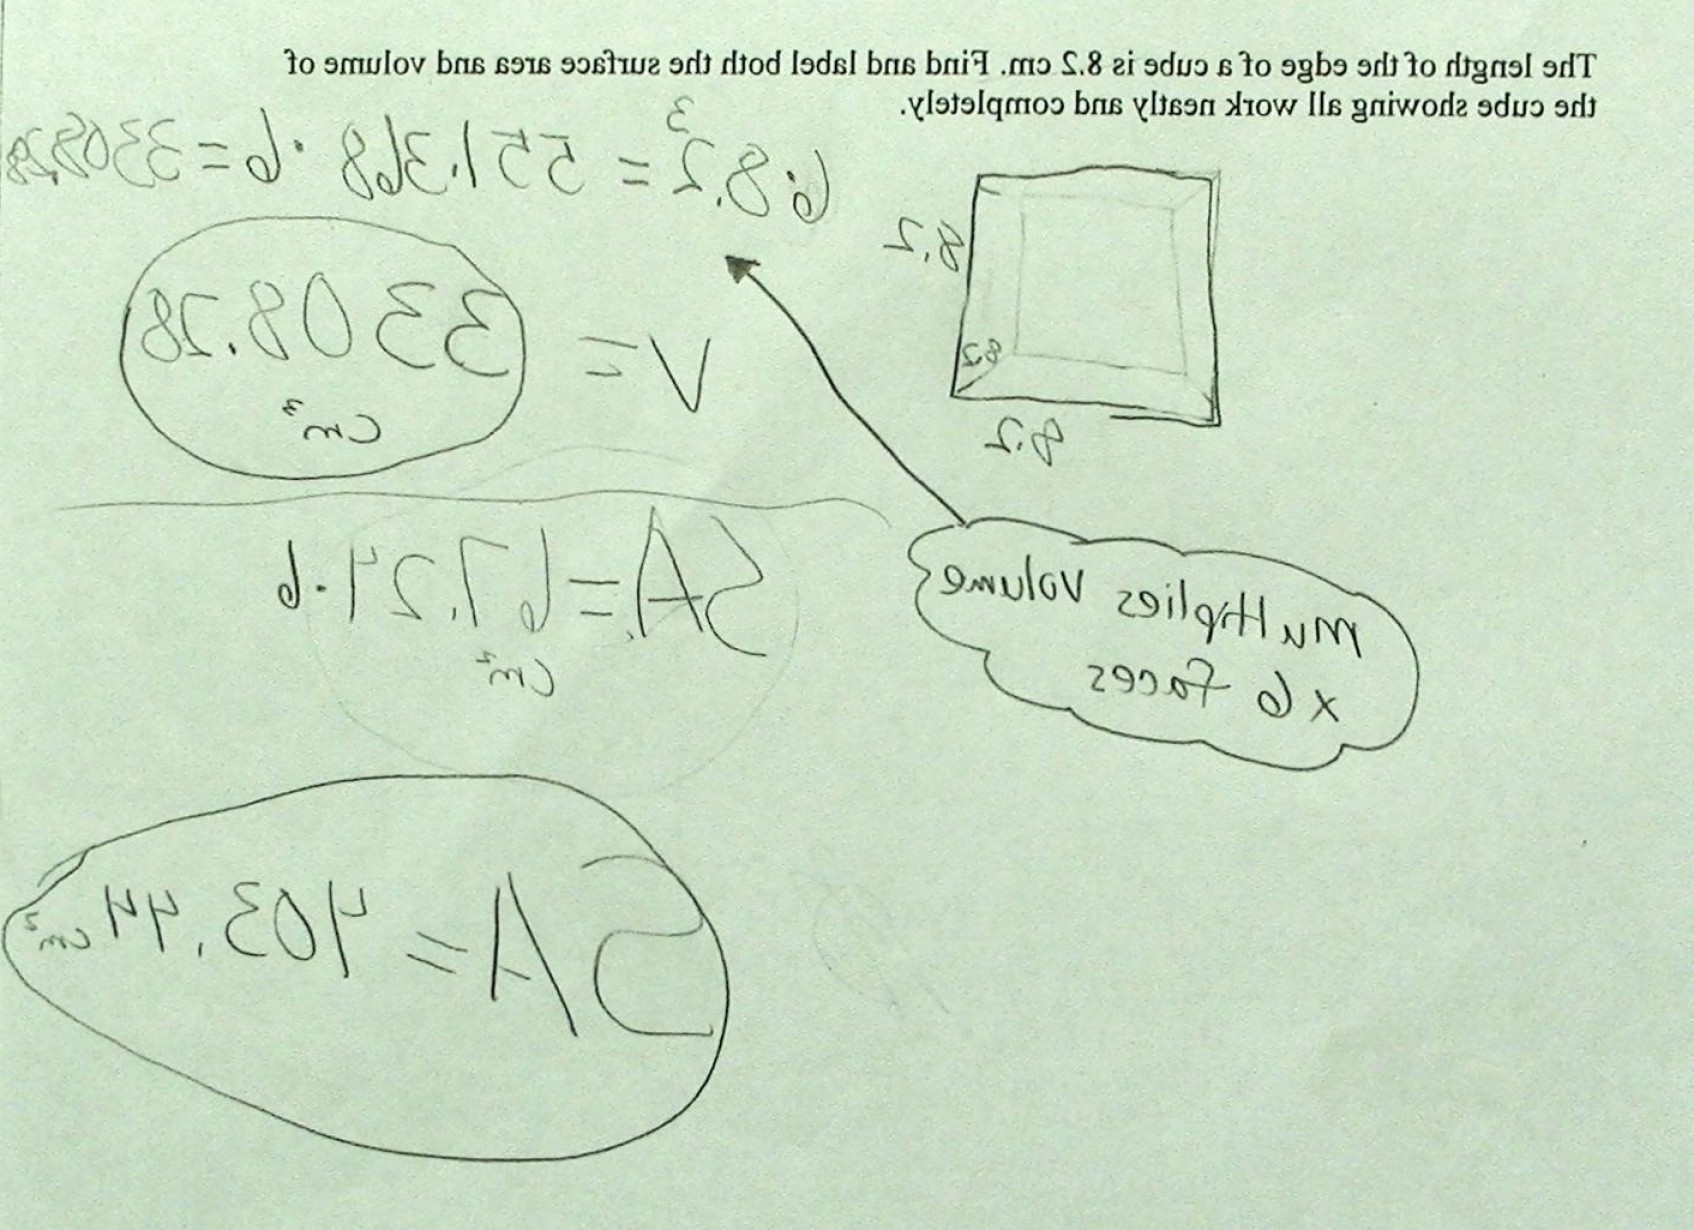 The length of the edge of a cube is 8.2 cm. Find and label both the surface area and volume of
the cube showing all work neatly and completely.
6·8.2³ = 551.368 · 6 = 3308.28
8.2
8.2
8.2
V = 3308.28
cm³
SA = 67.24 · 6
cm²
multiplies volume
x 6 faces
SA = 403.44 cm²